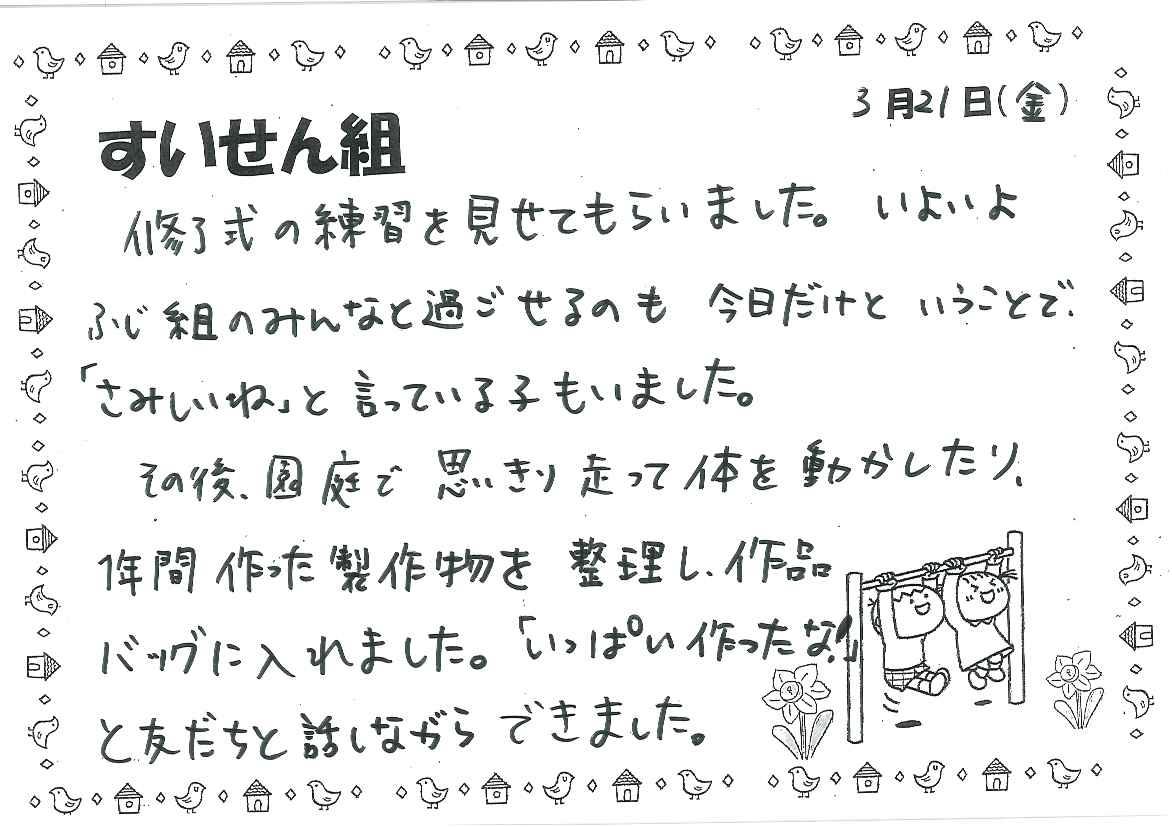 3月21日(金)
すいせん組
修了式の練習を見せてもらいました。いよいよ
ふじ組のみんなと過ごせるのも今日だけということで、
「さみしいね」と言っている子もいました。
その後、園庭で思いきり走って体を動かしたり、
1年間作った製作物を整理し、作品
バッグに入れました。「いっぱい作ったな!」
と友だちと話しながらできました。